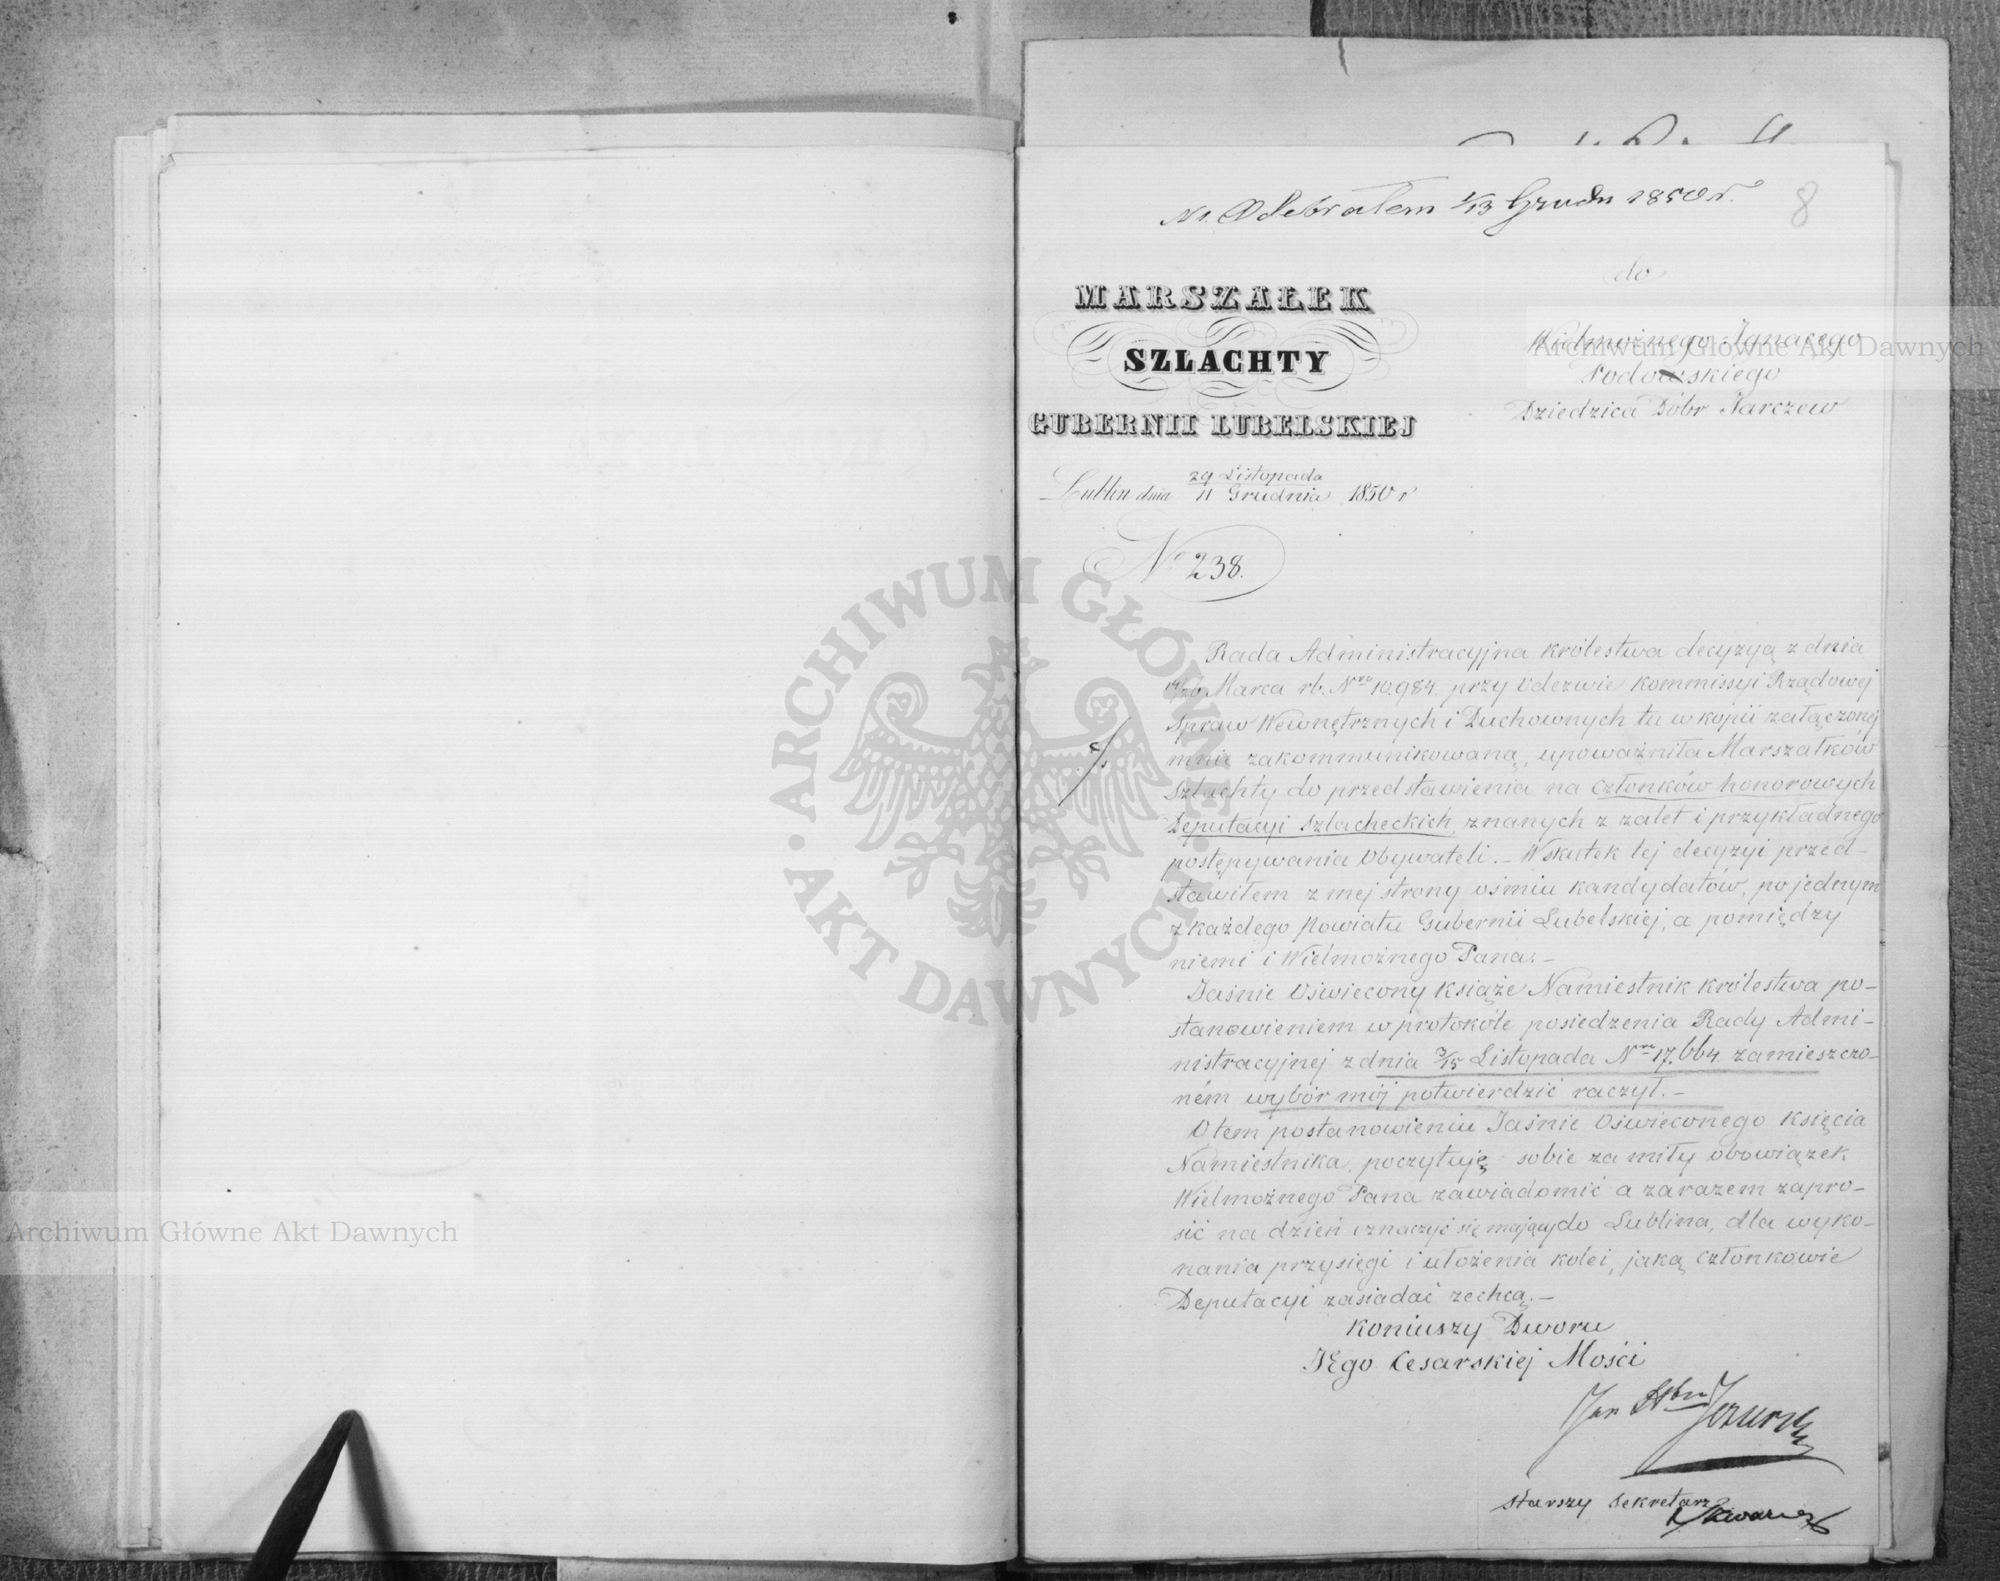 N1. Odebrałem 1/13 Grudn 1850 r.
8
MARSZAŁEK
SZLACHTY
GUBERNII LUBELSKIEJ
Lublin dnia 29 Listopada / 11 Grudnia 1850 r
No 238.
do
Wielmożnego Ignacego
Podowskiego
Dziedzica Dóbr Jarczew
Rada Administracyjna Królestwa decyzyą z dnia
14/26 Marca rb. Nro 10,984. przy Odezwie Kommissyi Rządowej
Spraw Wewnętrznych i Duchownych tu w kopii załączonej
mnie zakommunikowaną, upoważniła Marszałków
Szlachty do przedstawienia na Członków honorowych
Deputacyi Szlacheckich, znanych z zalet i przykładnego
postępywania Obywateli. – Wskutek tej decyzyi przed–
stawiłem z mej strony ośmiu kandydatów, po jednym
z każdego Powiatu Gubernii Lubelskiej, a pomiędzy
niemi i Wielmożnego Pana. –
Jaśnie Oświecony Książe Namiestnik Królestwa po–
stanowieniem w protokóle posiedzenia Rady Admi–
nistracyjnej z dnia 3/15 Listopada Nro 17,664. zamieszczo–
ném wybór mój potwierdzić raczył. –
O tem postanowieniu Jaśnie Oświeconego Księcia
Namiestnika, poczytuję sobie za miły obowiązek
Wielmożnego Pana zawiadomić a zarazem zapro–
sić na dzień oznaczyć się mający do Lublina, dla wyko–
nania przysięgi i ułożenia kolei, jaką Członkowie
Deputacyi zasiadać zechcą. –
Koniuszy Dworu
JEgo Cesarskiej Mości
Jan Jezierski
Starszy Sekretarz
ARCHIWUM GŁÓWNE · AKT DAWNYCH ·
Archiwum Główne Akt Dawnych
Archiwum Główne Akt Dawnych